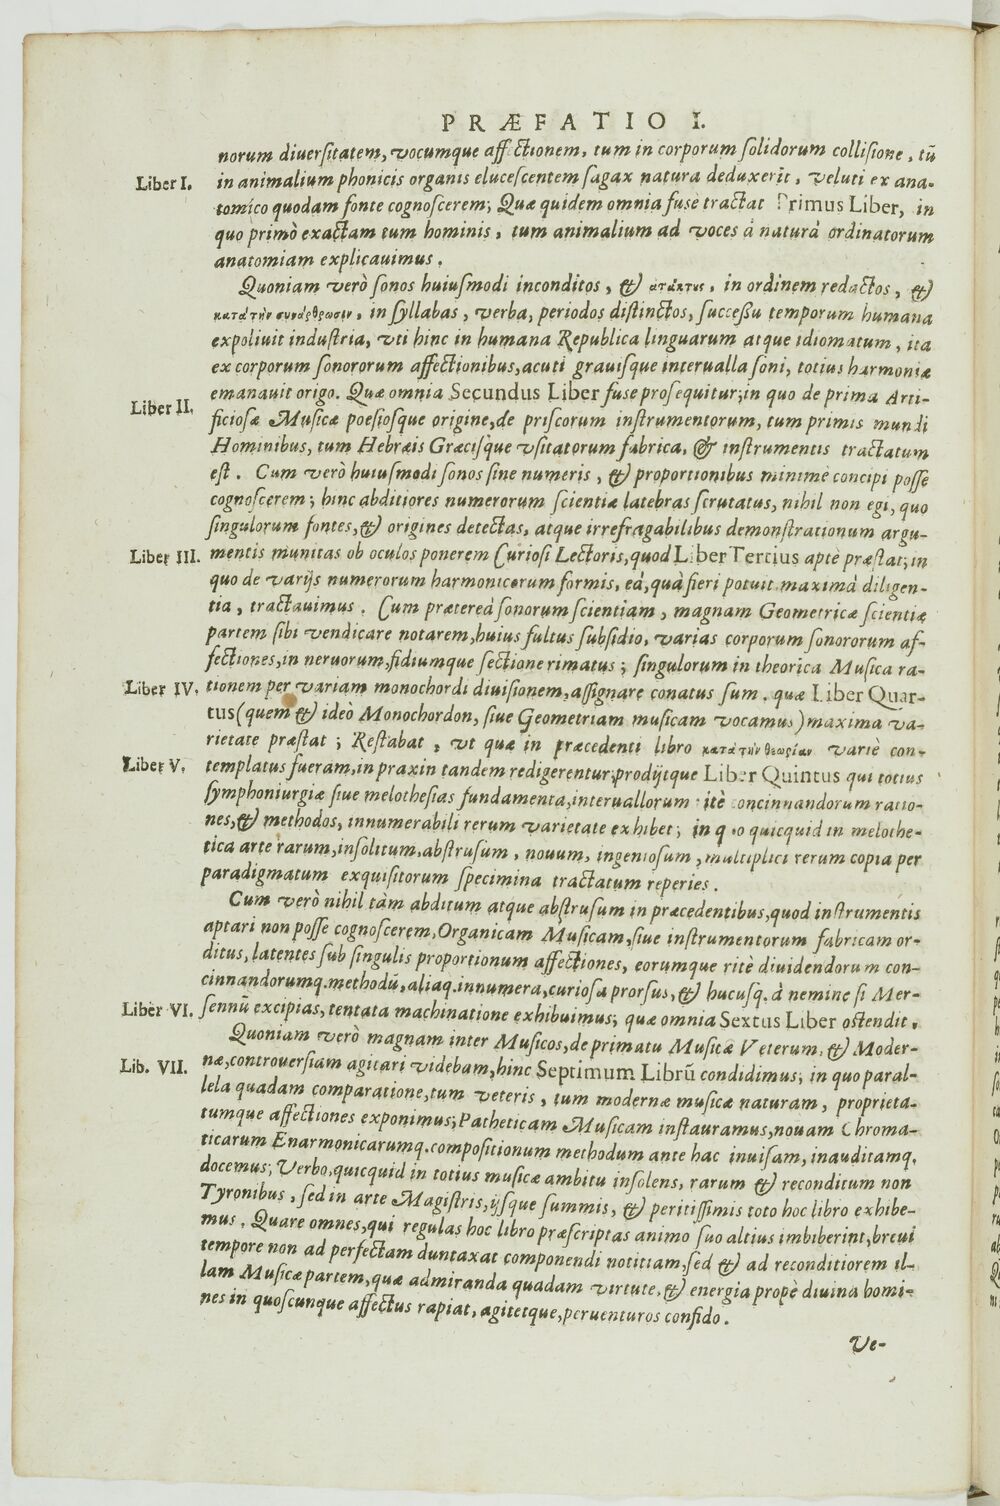 PRÆFATIO I.
norum diuersitatem, vocumque affectionem, tum in corporum solidorum collisione, tũ
Liber I.
in animalium phonicis organis elucescentem sagax natura deduxerit, veluti ex ana-
tomico quodam fonte cognoscerem; Quæ quidem omnia fusè tractat Primus Liber, in
quo primò exactam tum hominis, tum animalium ad voces à naturâ ordinatorum
anatomiam explicauimus.
Quoniam verò sonos huiusmodi inconditos, & ἀτάκτως, in ordinem redactos, &
κατὰ τὴν συνάρθρωσιν, in syllabas, verba, periodos distinctos, successu temporum humana
expoliuit industria, vti hinc in humana Republica linguarum atque idiomatum, ita
ex corporum sonororum affectionibus, acuti grauisque interualla soni, totius harmoniæ
emanauit origo. Quæ omnia Secundus Liber fuse prosequitur; in quo de prima Arti-
Liber II.
ficiosæ Musicæ poesiosque origine, de priscorum instrumentorum, tum primis mundi
Hominibus, tum Hebræis Græcisque vsitatorum fabrica, & instrumentis tractatum
est. Cum verò huiusmodi sonos sine numeris, & proportionibus minimè concipi posse
cognoscerem; hinc abditiores numerorum scientiæ latebras scrutatus, nihil non egi, quo
singulorum fontes, & origines detectas, atque irrefragabilibus demonstrationum argu-
Liber III.
mentis munitas ob oculos ponerem Curiosi Lectoris, quod Liber Tertius aptè præstat; in
quo de varijs numerorum harmonicorum formis, eâ, quâ fieri potuit maximâ diligen-
tia, tractauimus. Cum prætereà sonorum scientiam, magnam Geometricæ scientiæ
partem sibi vendicare notarem, huius fultus subsidio, varias corporum sonororum af-
fectiones, in neruorum, fidiumque sectione rimatus; singulorum in theorica Musica ra-
Liber IV.
tionem per variam monochordi diuisionem, assignare conatus sum. quæ Liber Quar-
tus (quem & ideò Monochordon, siue Geometriam musicam vocamus) maxima va-
rietate præstat; Restabat, vt quæ in præcedenti libro κατὰ τὴν θεωρίαν variè con-
Liber V.
templatus fueram, in praxin tandem redigerentur; prodijtque Liber Quintus qui totius
symphoniurgiæ siue melothesias fundamenta, interuallorum ritè concinnandorum ratio-
nes, & methodos, innumerabili rerum varietate exhibet; in quo quicquid in melothe-
tica arte rarum, insolitum, abstrusum, nouum, ingeniosum, multiplici rerum copia per
paradigmatum exquisitorum specimina tractatum reperies.
Cum verò nihil tàm abditum atque abstrusum in præcedentibus, quod instrumentis
aptari non posse cognoscerem, Organicam Musicam, siue instrumentorum fabricam or-
ditus, latentes sub singulis proportionum affectiones, eorumque ritè diuidendorum con-
cinnandorumq. methodũ, aliaq. innumera, curiosa prorsus, & hucusq. à nemine si Mer-
Liber VI.
sennũ excipias, tentata machinatione exhibuimus; quæ omnia Sextus Liber ostendit.
Quoniam verò magnam inter Musicos, de primatu Musicæ Veterum, & Moder-
Lib. VII.
næ, controuersiam agitari videbam, hinc Septimum Librũ condidimus; in quo paral-
lela quadam comparatione, tum veteris, tum modernæ musicæ naturam, proprieta-
tumque affectiones exponimus; Patheticam Musicam instauramus, nouam Chroma-
ticarum Enarmonicarumq. compositionum methodum ante hac inuisam, inauditamq.
docemus; Verbo, quicquid in totius musicæ ambitu insolens, rarum & reconditum non
Tyronibus, sed in arte Magistris, ijsque summis, & peritissimis toto hoc libro exhibe-
mus. Quare omnes, qui regulas hoc libro præscriptas animo suo altius imbiberint, breui
tempore non ad perfectam duntaxat componendi notitiam, sed & ad reconditiorem il-
lam Musicæ partem, quæ admiranda quadam virtute, & energia propè diuina homi-
nes in quoscunque affectus rapiat, agitetque, peruenturos confido.
Ve-